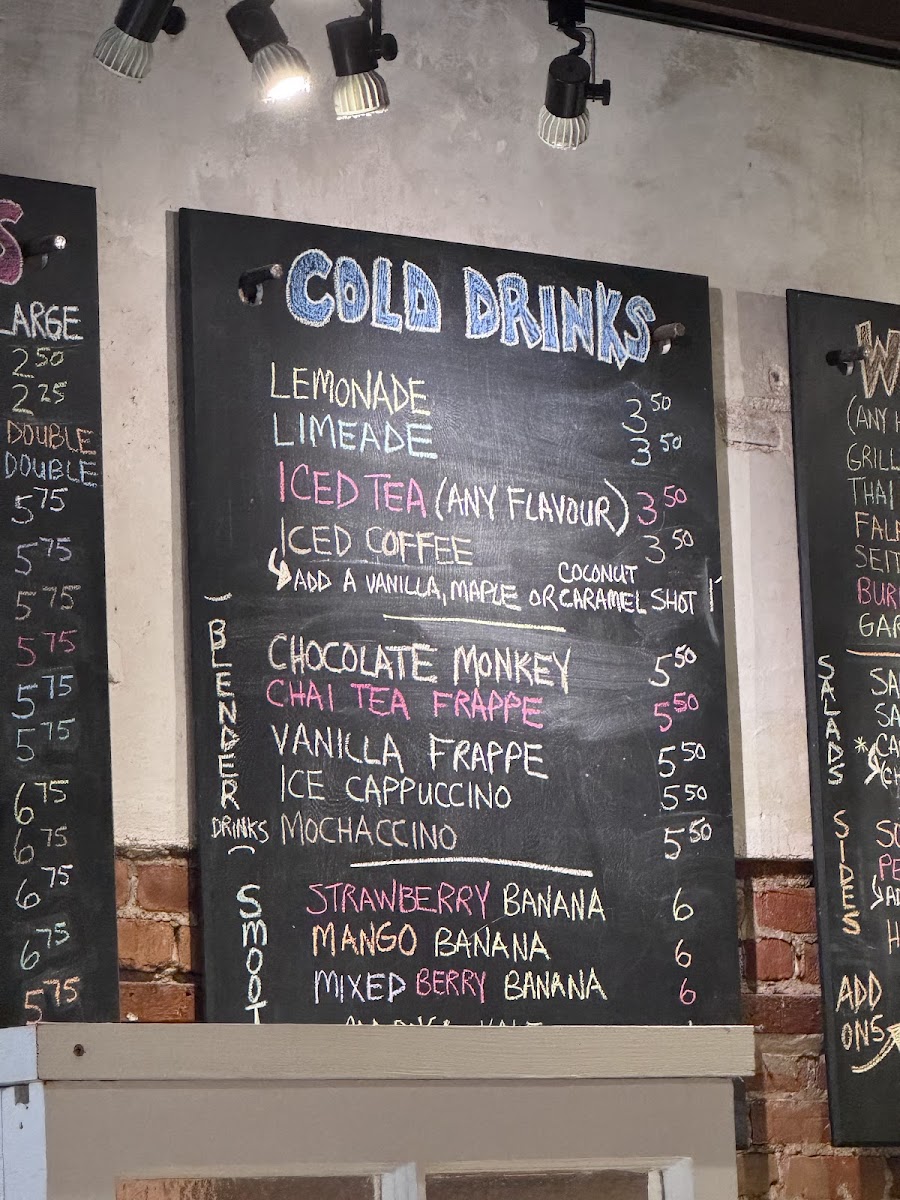 LARGE
2 50
2 25
DOUBLE
DOUBLE
5 75
5 75
5 75
5 75
5 75
5 75
6 75
6 75
6 75
6 75
5 75
COLD DRINKS
LEMONADE 3 50
LIMEADE 3 50
ICED TEA (ANY FLAVOUR) 3 50
ICED COFFEE 3 50
COCONUT
ADD A VANILLA, MAPLE OR CARAMEL SHOT 1
BLENDER
DRINKS
CHOCOLATE MONKEY 5 50
CHAI TEA FRAPPE 5 50
VANILLA FRAPPE 5 50
ICE CAPPUCCINO 5 50
MOCHACCINO 5 50
STRAWBERRY BANANA 6
MANGO BANANA 6
MIXED BERRY BANANA 6
(ANY
THAI
SALADS
SIDES
ADD
ONS